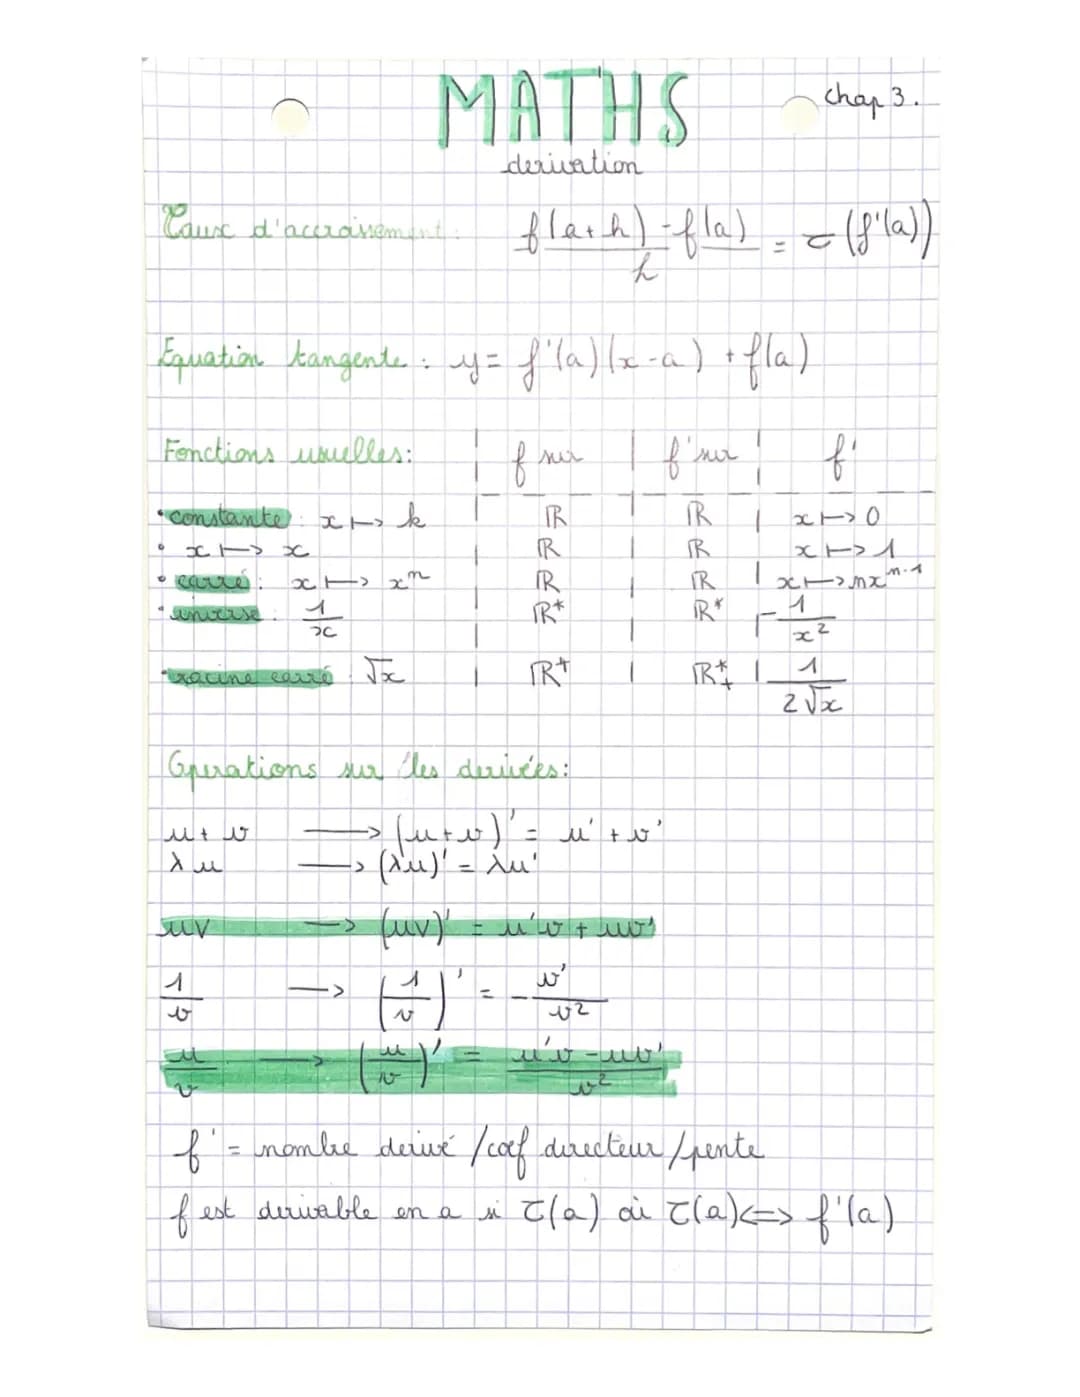 MATHS
chap 3.
derivation
Taux d'accroissement : f(a+h)-f(a) / h = τ (f'(a))
Equation tangente : y= f'(a)(x-a) + f(a)
Fonctions usuelles: | f sur | f' sur | f'
• constante : x ↦ k | ℝ | ℝ | x ↦ 0
• x ↦ x | ℝ | ℝ | x ↦ 1
• carré : x ↦ xⁿ | ℝ | ℝ | x ↦ nxⁿ⁻¹
• inverse : 1/x | ℝ* | ℝ* | -1/x²
• racine carré : √x | ℝ⁺ | ℝ*₊ | 1/2√x
Opérations sur les derivées:
u+v → (u+v)' = u' + v'
λu → (λu)' = λu'
uv → (uv)' = u'v + uv'
1/v → (1/v)' = -v'/v²
u/v → (u/v)' = u'v - uv'/v²
f' = nombre derivé /coef directeur /pente
f est derivable en a si τ(a) où τ(a) ⟺ f'(a)